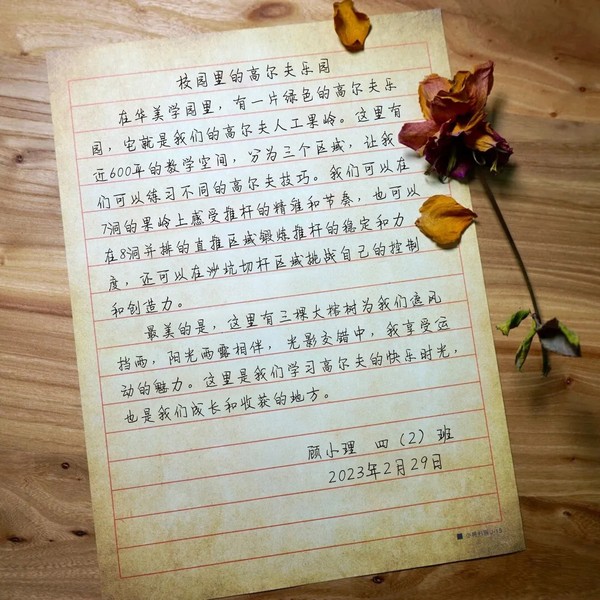 校园里的高尔夫乐园
在华美学园里，有一片绿色的高尔夫乐
园，它就是我们的高尔夫人工果岭。这里有
近600年的教学空间，分为三个区域，让我
们可以练习不同的高尔夫技巧。我们可以在
7洞的果岭上感受推杆的精准和节奏，也可以
在8洞并排的直推区域锻炼推杆的稳定和力
度，还可以在沙坑切杆区域挑战自己的控制
和创造力。
最美的是，这里有三棵大榕树为我们遮风
挡雨，阳光雨露相伴，光影交错中，我享受运
动的魅力。这里是我们学习高尔夫的快乐时光，
也是我们成长和收获的地方。
顾小理 四（2）班
2023年2月29日